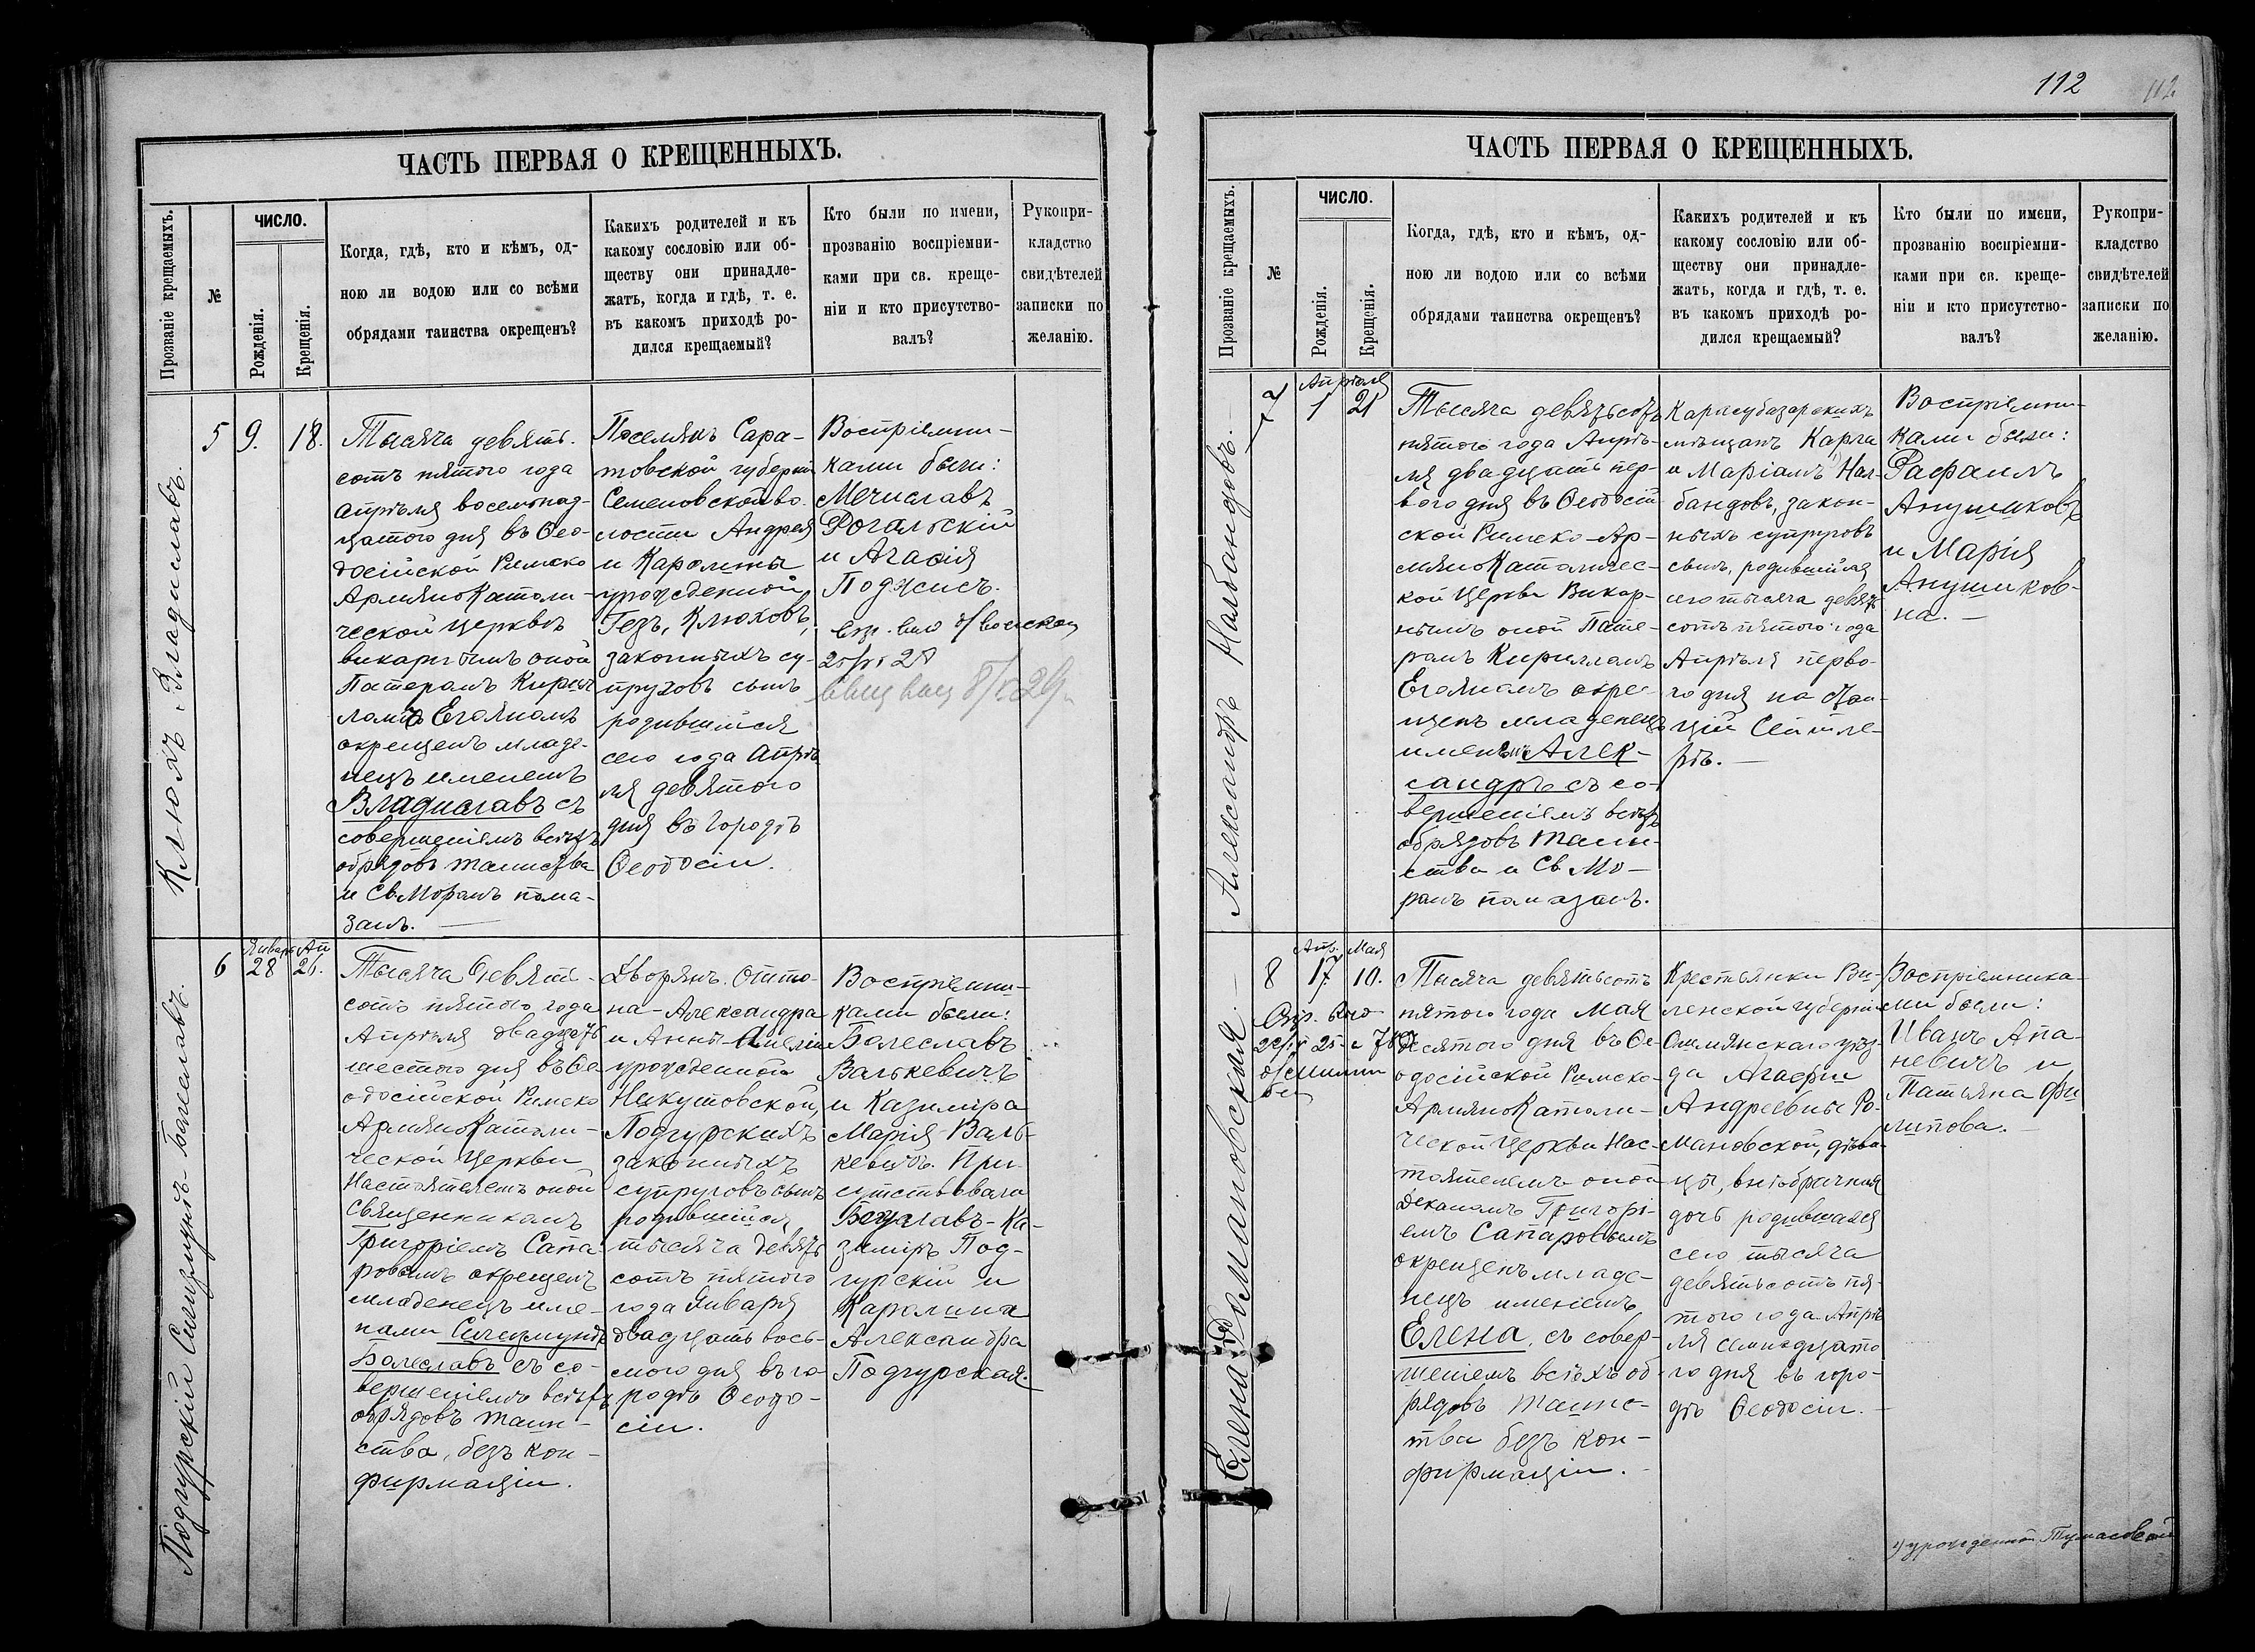 112
112
ЧАСТЬ ПЕРВАЯ О КРЕЩЕННЫХЪ.
Прозваніе крещаемыхъ.
№
ЧИСЛО.
Рожденія.
Крещенія.
Когда, гдѣ, кто и кѣмъ, од-
ною ли водою или со всѣми
обрядами таинства окрещенъ?
Какихъ родителей и къ
какому сословію или об-
ществу они принадле-
жатъ, когда и гдѣ, т. е.
въ какомъ приходѣ ро-
дился крещаемый?
Кто были по имени,
прозванію воспріемни-
ками при св. креще-
ніи и кто присутство-
валъ?
Рукопри-
кладство
свидѣтелей
записки по
желанію.
Клюхъ Владиславъ.
5
9.
18.
Тысяча девять-
сотъ пятого года
апрѣля восемнад-
цатого дня въ Ѳео-
досійской Римско
АрмяноКатоли-
ческой церквѣ
викарнымъ оной
Патеромъ Кирил
ломъ Егояномъ
окрещенъ младе-
нецъ именемъ
Владиславъ съ
совершеніемъ всѣхъ
обрядовъ таинства
и Св Мѵромъ пома-
занъ.
Поселянъ Сара-
товской губерніи
Семеновской во-
лости Андрея
и Каролины
урожденной
Гезъ, Клюховъ,
законныхъ су-
пруговъ сынъ
родившійся
сего года Апрѣ
ля девятого
дня въ городѣ
Ѳеодосіи.
Воспріемни-
ками были:
Мечиславъ
Рогальскій
и Агафія
Поджусъ.
6
Январ
28
Ап
26.
Подгурскій Сигизмундъ-Болеславъ.
Тысяча девять-
сотъ пятого года
Апрѣля двадцать
шестого дня въ Ѳе
одосійской Римско
АрмяноКатоли-
ческой Церкви
Настоятелемъ оной
Священникомъ
Григоріемъ Сапа-
ровымъ окрещенъ
младенецъ име-
нами Сигизмундъ
Болеславъ съ со-
вершеніемъ всѣхъ
обрядовъ таин-
ства, безъ кон-
фирмаціи.
Дворянъ. Отто-
на-Александра
и Анны-Амеліи
урожденной
Никутовской,
Подгурскихъ
законныхъ
супруговъ сынъ
родившійся
тысяча девять
сотъ пятого
года Января
двадцать вось-
мого дня въ го-
родѣ Ѳеодо-
сіи.
Воспріемни-
ками были:
Болеславъ
Валькевичъ
и Казиміра
Марія Валь-
кевичъ. При
сутствовали
Ка-
зиміръ Под-
гурскій и
Каролина
Александра
Подгурская.
ЧАСТЬ ПЕРВАЯ О КРЕЩЕННЫХЪ.
Прозваніе крещаемыхъ.
№
ЧИСЛО.
Рожденія.
Крещенія.
Когда, гдѣ, кто и кѣмъ, од-
ною ли водою или со всѣми
обрядами таинства окрещенъ?
Какихъ родителей и къ
какому сословію или об-
ществу они принадле-
жатъ, когда и гдѣ, т. е.
въ какомъ приходѣ ро-
дился крещаемый?
Кто были по имени,
прозванію воспріемни-
ками при св. креще-
ніи и кто присутство-
валъ?
Рукопри-
кладство
свидѣтелей
записки по
желанію.
Александръ Налбандовъ.
7
Апрѣля
1
21
Тысяча девятьсотъ
пятого года Апрѣ-
ля двадцать пер-
вого дня въ Ѳеодосій
ской Римско-Ар-
мяноКатоличес-
кой Церкви Викар-
нымъ оной Пате-
ромъ Кирилломъ
Егояномъ окре-
щенъ младенецъ
именемъ Алек-
сандръ съ со-
вершеніемъ всѣхъ
обрядовъ таин-
ства и Св Мѵ-
ромъ помазанъ.
Карасубазарскихъ
мѣщанъ Карпа
и Маріамъ Нал-
бандовъ, закон-
ныхъ супруговъ
сынъ, родившійся
сего тысяча девять
сотъ пятого года
Апрѣля перво-
го дня на Стан-
ціи Сейтле-
рѣ.
Воспріемни-
ками были:
Рафаилъ
Анушиковъ
и Марія
Анушиков-
на.
Елена Романовская.
8
Апр.
17.
Мая
10.
Тысяча девятьсотъ
пятого года Мая
десятого дня въ Ѳе-
одосійской Римско-
АрмяноКатоли-
ческой Церкви Нас-
тоятелемъ оной
Деканомъ Григорі-
емъ Сапаровымъ
окрещенъ младе-
нецъ именемъ
Елена, съ совер-
шеніемъ всѣхъ об-
рядовъ Таинс-
тва безъ кон-
фирмаціи.
Крестьянки Ви-
ленской губерніи
Ошмянскаго уѣз-
да Агафіи
Андреевны Ро-
мановской, дѣви-
цы, внѣбрачная
дочь родившаяся
сего тысяча
девятьсотъ пя-
того года Апрѣ
ля семнадцато
го дня въ горо-
дѣ Ѳеодосіи.
Воспріемника-
ми были:
Иванъ Апа-
невичъ и
Татьяна Фи
липова.
1) урожденной Тумасовой